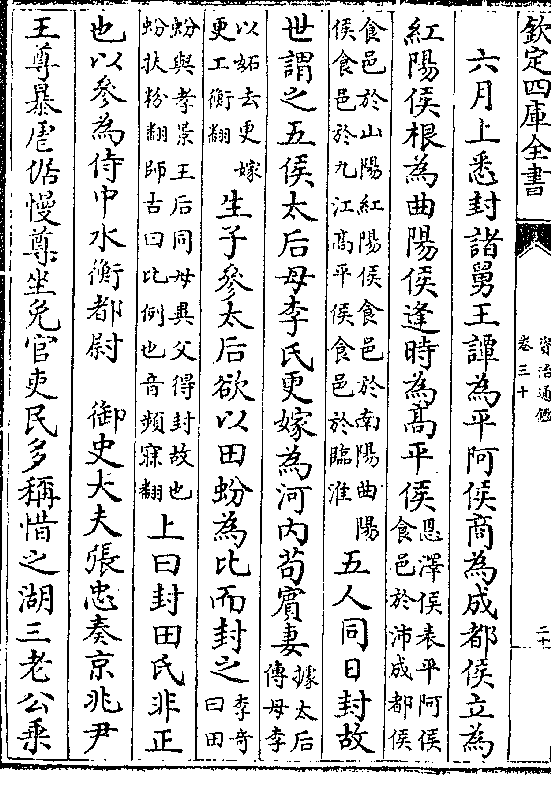 欽定四庫全書
資治通鑑
卷三十
六月上悉封諸舅王譚為平阿侯商為成都侯立為
紅陽侯根為曲陽侯逢時為髙平侯
恩澤侯表平阿侯
食邑於沛成都侯
食邑於山陽紅陽侯食邑於南陽曲陽
侯食邑於九江髙平侯食邑於臨淮
五人同日封故
世謂之五侯太后母李氏更嫁為河内苟賓妻
據太后
傳母李
以妬去更嫁
更工衡翻
生子參太后欲以田蚡為比而封之
李奇
曰田
蚡與孝景王后同母異父得封故也
蚡扶粉翻師古曰比例也音頻寐翻
上曰封田氏非正
也以參為侍中水衡都尉 御史大夫張忠奏京兆尹
王尊暴虐倨慢尊坐免官吏民多稱惜之湖三老公乘